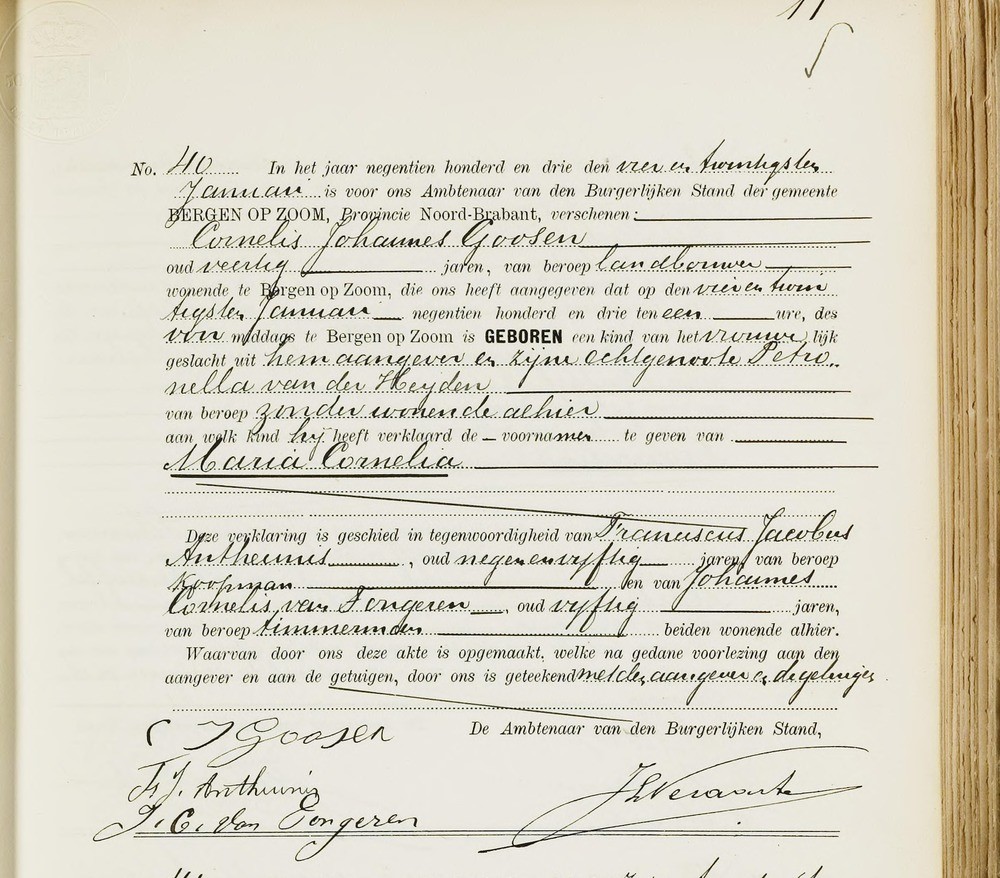 11
No. 40 In het jaar negentien honderd en drie den vier en twintigsten
Januari is voor ons Ambtenaar van den Burgerlijken Stand der gemeente
BERGEN OP ZOOM, Provincie Noord-Brabant, verschenen:
Cornelis Johannes Goosen
oud veertig jaren, van beroep landbouwer
wonende te Bergen op Zoom, die ons heeft aangegeven dat op den vier en twin
tigsten Januari negentien honderd en drie ten een ure, des
voor middags te Bergen op Zoom is GEBOREN een kind van het vrouwe lijk
geslacht uit hem aangever en zijne echtgenoote Petro-
nella van der Heyden
van beroep zonder wonende alhier
aan welk kind hij heeft verklaard de voornamen te geven van
Maria Cornelia
Deze verklaring is geschied in tegenwoordigheid van Franciscus Jacobus
Antheunis, oud negen en vyftig jaren, van beroep
Koopman en van Johannes
Cornelis van Tongeren, oud vyftig jaren,
van beroep timmerman beiden wonende alhier.
Waarvan door ons deze akte is opgemaakt, welke na gedane voorlezing aan den
aangever en aan de getuigen, door ons is geteekend met den aangever en de getuigen
De Ambtenaar van den Burgerlijken Stand,
C J Goosen
F. J. Antheunis
J. C. van Tongeren